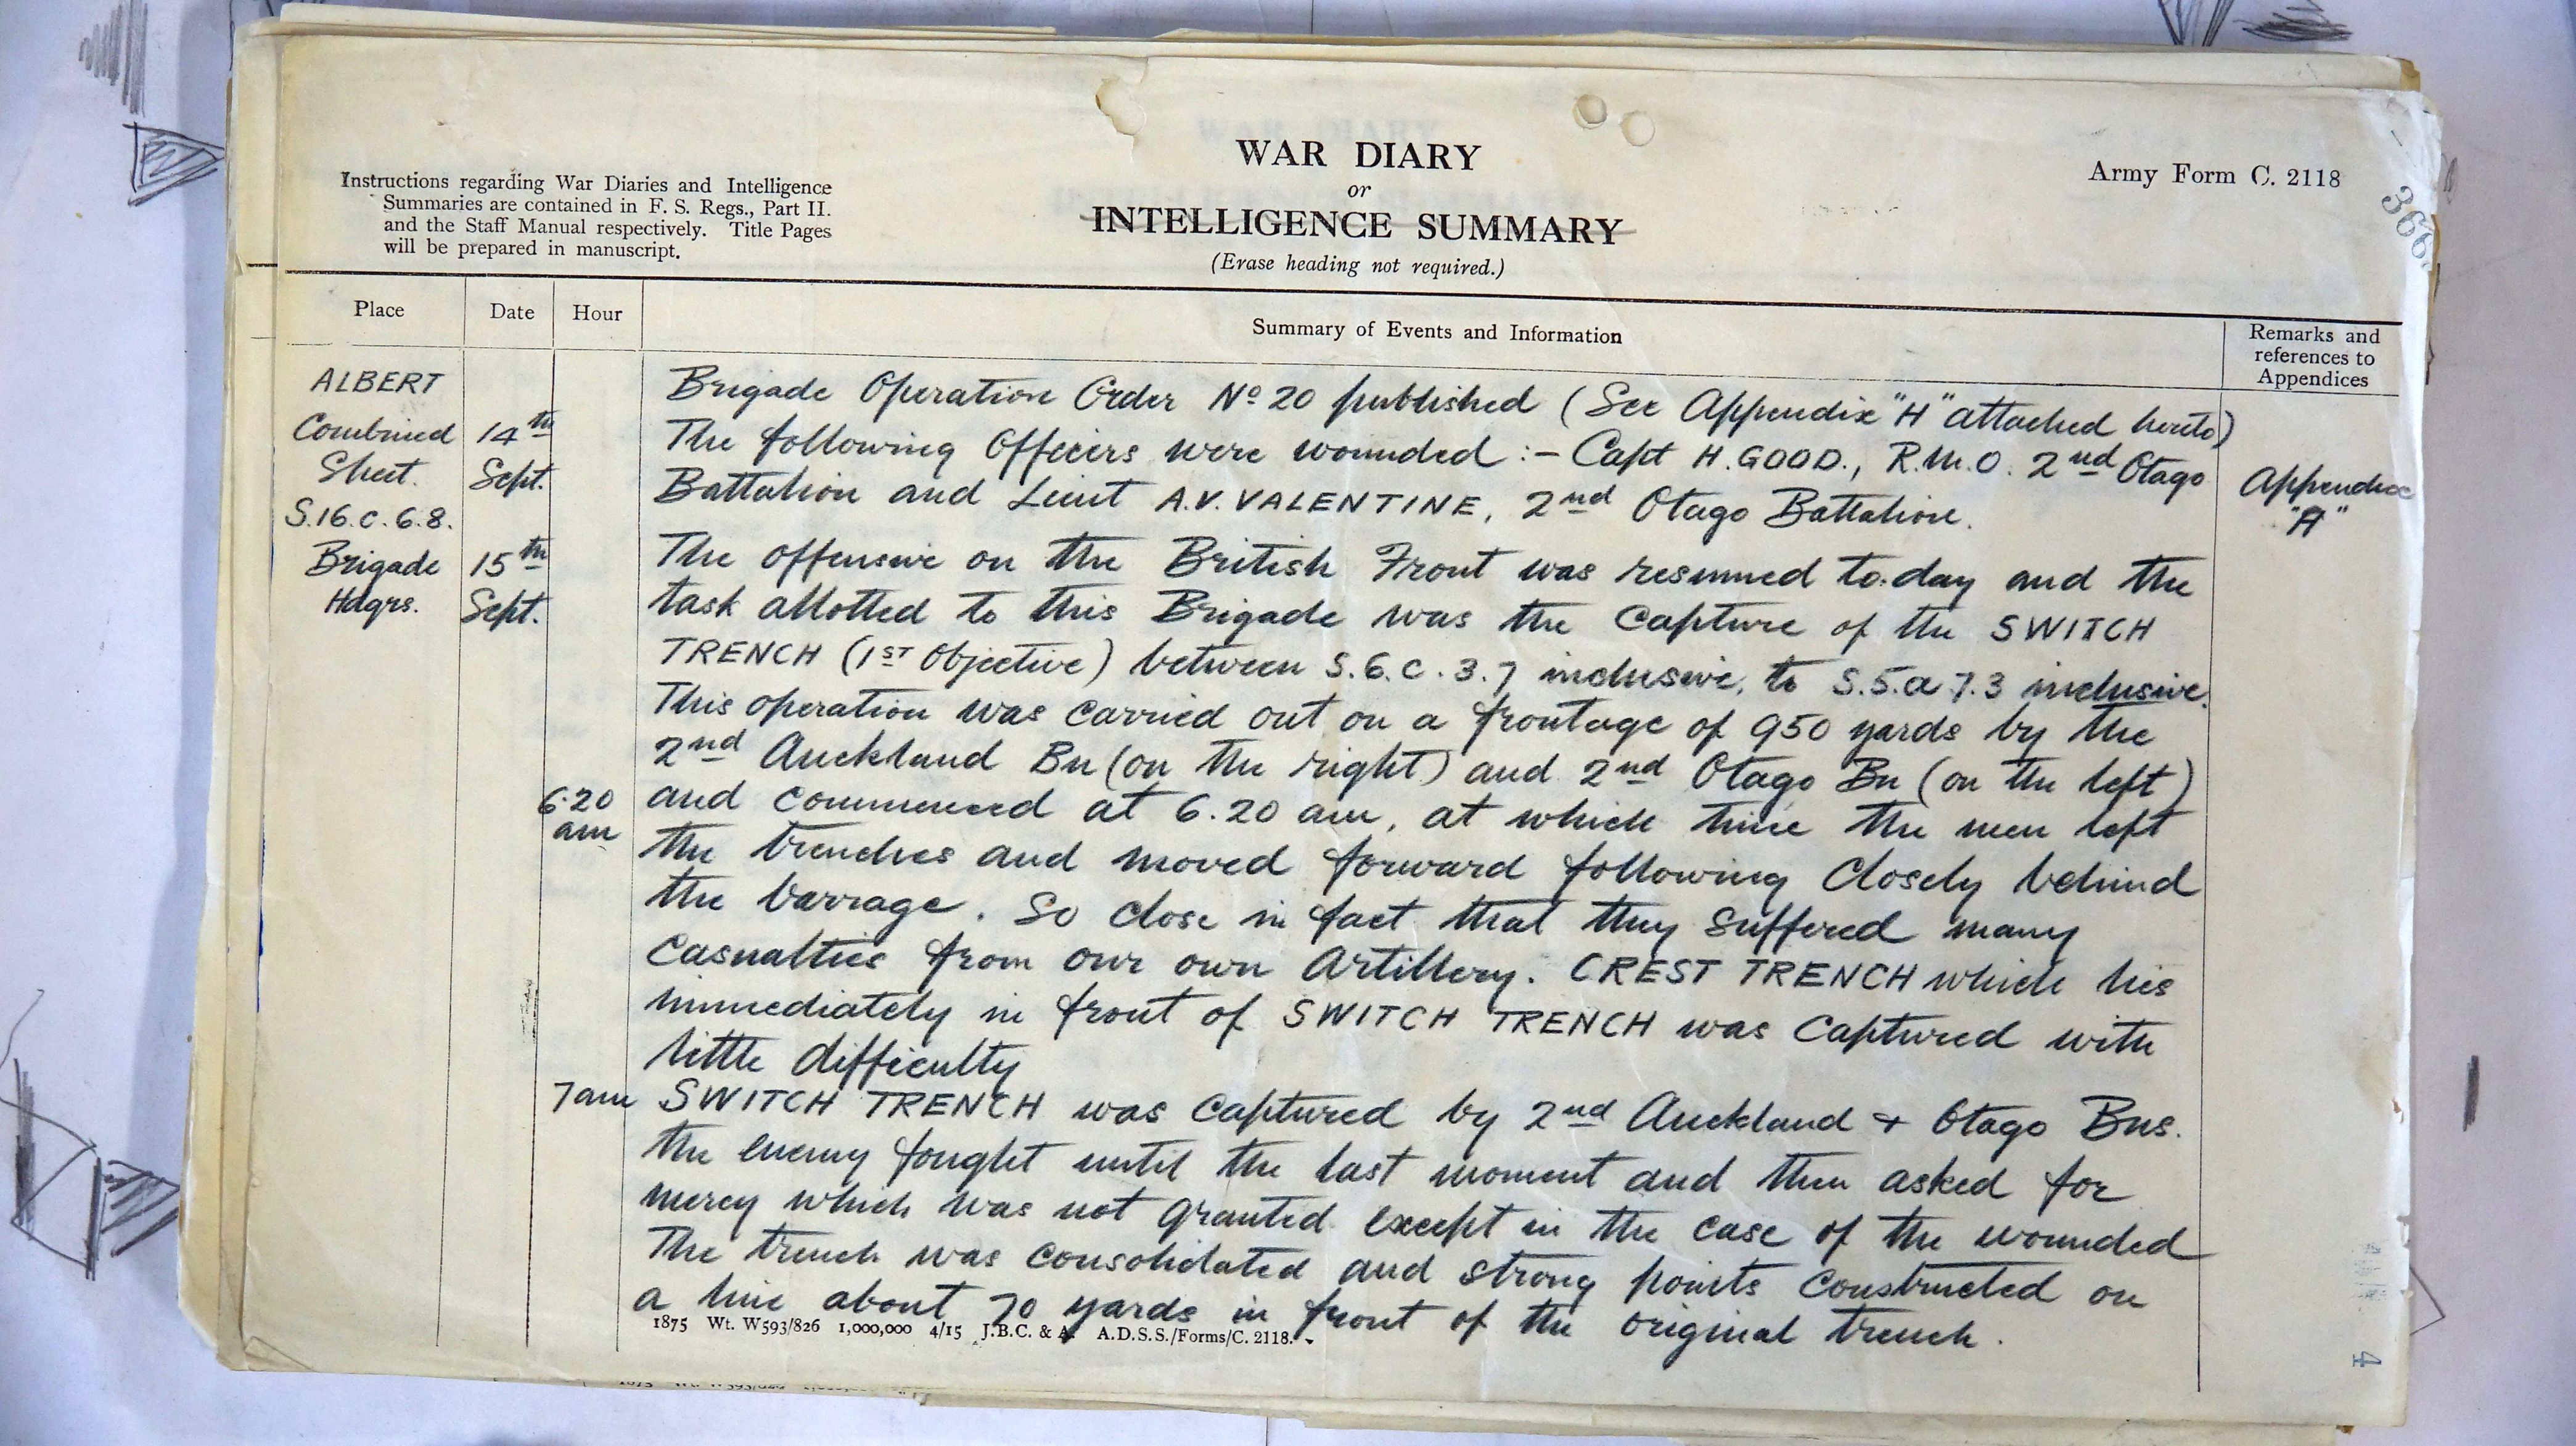 WAR DIARY
or
INTELLIGENCE SUMMARY
(Erase heading not required.)
Instructions regarding War Diaries and Intelligence
Summaries are contained in F. S. Regs., Part II.
and the Staff Manual respectively. Title Pages
will be prepared in manuscript.
Army Form C. 2118
366
Place
Date
Hour
Summary of Events and Information
Remarks and
references to
Appendices
ALBERT
Combined
Sheet.
S.16.c.6.8.
Brigade
Hdqrs.
14th
Sept.
Brigade Operation Order No 20 published (See Appendix "H" attached hereto)
The following Officers were wounded :- Capt H. GOOD., R.M.O. 2nd Otago
Battalion and Lieut A.V. VALENTINE, 2nd Otago Battalion.
Appendix
"H"
15th
Sept.
The offensive on the British Front was resumed to-day and the
task allotted to this Brigade was the Capture of the SWITCH
TRENCH (1ST Objective) between S.6.c.3.7 inclusive, to S.5.a.7.3 inclusive.
This operation was carried out on a frontage of 950 yards by the
2nd Auckland Bn (on the right) and 2nd Otago Bn (on the left)
6.20
am
and commenced at 6.20 am, at which time the men left
the trenches and moved forward following closely behind
the barrage. So close in fact that they suffered many
Casualties from our own Artillery. CREST TRENCH which lies
immediately in front of SWITCH TRENCH was captured with
little difficulty
7am
SWITCH TRENCH was captured by 2nd Auckland + Otago Bns.
the enemy fought until the last moment and then asked for
mercy which was not granted except in the case of the wounded
The trench was consolidated and strong points constructed on
a line about 70 yards in front of the original trench.
1875 Wt. W593/826 1,000,000 4/15 J.B.C. & A. A.D.S.S./Forms/C. 2118.
4